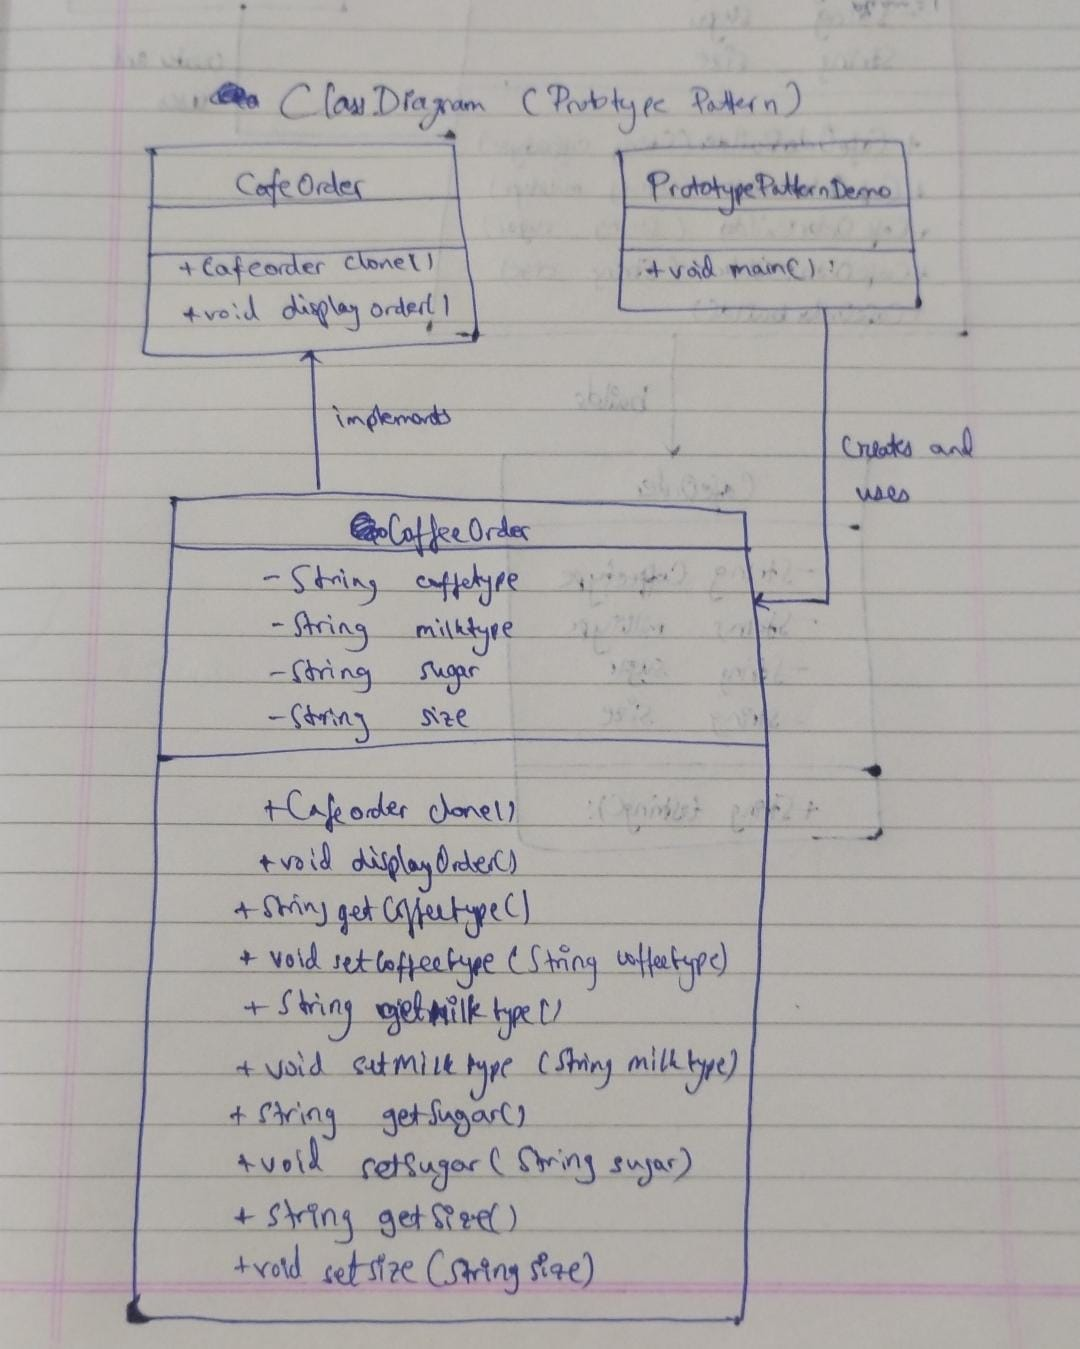 Class Diagram (Prototype Pattern)
CafeOrder
+Cafeorder clone()
+void display order()
PrototypePatternDemo
+void main() :
implements
Creates and
uses
CoffeeOrder
- String coffetype
- String milktype
- String sugar
- String size
+Cafeorder clone()
+void displayOrder()
+ String getCoffeetype()
+ void setcoffeetype (String coffeetype)
+ String getmilktype()
+ void setMilktype (String milktype)
+ String getsugar()
+ void setsugar (String sugar)
+ String getsize()
+void setsize (String size)